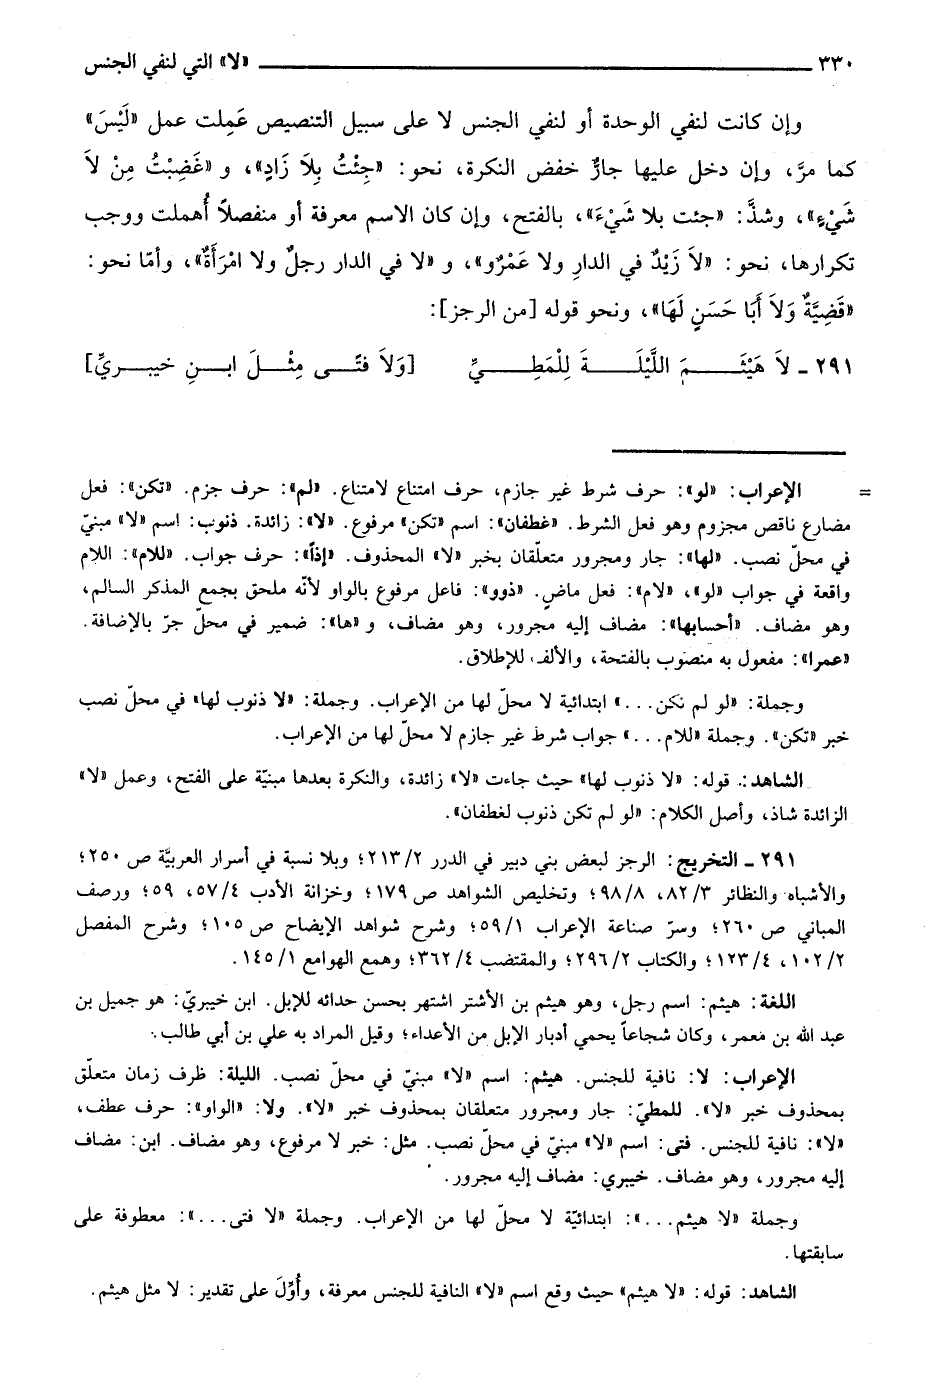 ٣٣٠ «لا» التي لنفي الجنس
وإن كانت لنفي الوحدة أو لنفي الجنس لا على سبيل التنصيص عَمِلت عمل «لَيْسَ»
كما مرَّ، وإن دخل عليها جارٌّ خفض النكرة، نحو: «جِئْتُ بِلاَ زَادٍ»، و «غَضِبْتُ مِنْ لاَ
شَيْءٍ»، وشذَّ: «جئت بلا شَيْءَ»، بالفتح، وإن كان الاسم معرفة أو منفصلاً أُهملت ووجب
تكرارها، نحو: «لاَ زَيْدٌ في الدارِ ولا عَمْرٌو»، و «لا في الدار رجلٌ ولا امْرَأَةٌ»، وأمّا نحو:
«قَضِيَّةٌ وَلاَ أَبَا حَسَنٍ لَهَا»، ونحو قوله [من الرجز]:
٢٩١ ـ لاَ هَيْثَمَ اللَّيْلَةَ لِلْمَطِيِّ [وَلاَ فتًى مِثْلَ ابنِ خيبريِّ]
= الإعراب: «لو»: حرف شرط غير جازم، حرف امتناع لامتناع. «لم»: حرف جزم. «تكن»: فعل
مضارع ناقص مجزوم وهو فعل الشرط. «غطفان»: اسم «تكن» مرفوع. «لا»: زائدة. ذنوب: اسم «لا» مبنيّ
في محلّ نصب. «لها»: جار ومجرور متعلّقان بخبر «لا» المحذوف. «إذاً»: حرف جواب. «للام»: اللام
واقعة في جواب «لو»، «لام»: فعل ماضٍ. «ذوو»: فاعل مرفوع بالواو لأنّه ملحق بجمع المذكر السالم،
وهو مضاف. «أحسابها»: مضاف إليه مجرور، وهو مضاف، و «ها»: ضمير في محلّ جرّ بالإضافة.
«عمرا»: مفعول به منصوب بالفتحة، والألف للإطلاق.
وجملة: «لو لم تكن...» ابتدائية لا محلّ لها من الإعراب. وجملة: «لا ذنوب لها» في محلّ نصب
خبر «تكن». وجملة «للام...» جواب شرط غير جازم لا محلّ لها من الإعراب.
الشاهد: قوله: «لا ذنوب لها» حيث جاءت «لا» زائدة، والنكرة بعدها مبنيّة على الفتح، وعمل «لا»
الزائدة شاذ، وأصل الكلام: «لو لم تكن ذنوب لغطفان».
٢٩١ ـ التخريج: الرجز لبعض بني دبير في الدرر ٢١٣/٢؛ وبلا نسبة في أسرار العربيَّة ص ٢٥٠؛
والأشباه والنظائر ٨٢/٣، ٩٨/٨؛ وتخليص الشواهد ص ١٧٩؛ وخزانة الأدب ٥٧/٤، ٥٩؛ ورصف
المباني ص ٢٦٠؛ وسرّ صناعة الإعراب ٥٩/١؛ وشرح شواهد الإيضاح ص ١٠٥؛ وشرح المفصل
١٠٢/٢، ١٢٣/٤؛ والكتاب ٢٩٦/٢؛ والمقتضب ٣٦٢/٤؛ وهمع الهوامع ١٤٥/١.
اللغة: هيثم: اسم رجل، وهو هيثم بن الأشتر اشتهر بحسن حدائه للإبل. ابن خيبريّ: هو جميل بن
عبد الله بن معمر، وكان شجاعاً يحمي أدبار الإبل من الأعداء؛ وقيل المراد به علي بن أبي طالب.
الإعراب: لا: نافية للجنس. هيثم: اسم «لا» مبنيّ في محلّ نصب. الليلة: ظرف زمان متعلّق
بمحذوف خبر «لا». للمطيّ: جار ومجرور متعلقان بمحذوف خبر «لا». ولا: «الواو»: حرف عطف،
«لا»: نافية للجنس. فتى: اسم «لا» مبنيّ في محلّ نصب. مثل: خبر لا مرفوع، وهو مضاف. ابن: مضاف
إليه مجرور، وهو مضاف. خيبري: مضاف إليه مجرور.
وجملة «لا هيثم...»: ابتدائيّة لا محلّ لها من الإعراب. وجملة «لا فتى...»: معطوفة على
سابقتها.
الشاهد: قوله: «لا هيثم» حيث وقع اسم «لا» النافية للجنس معرفة، وأُوِّلَ على تقدير: لا مثل هيثم.